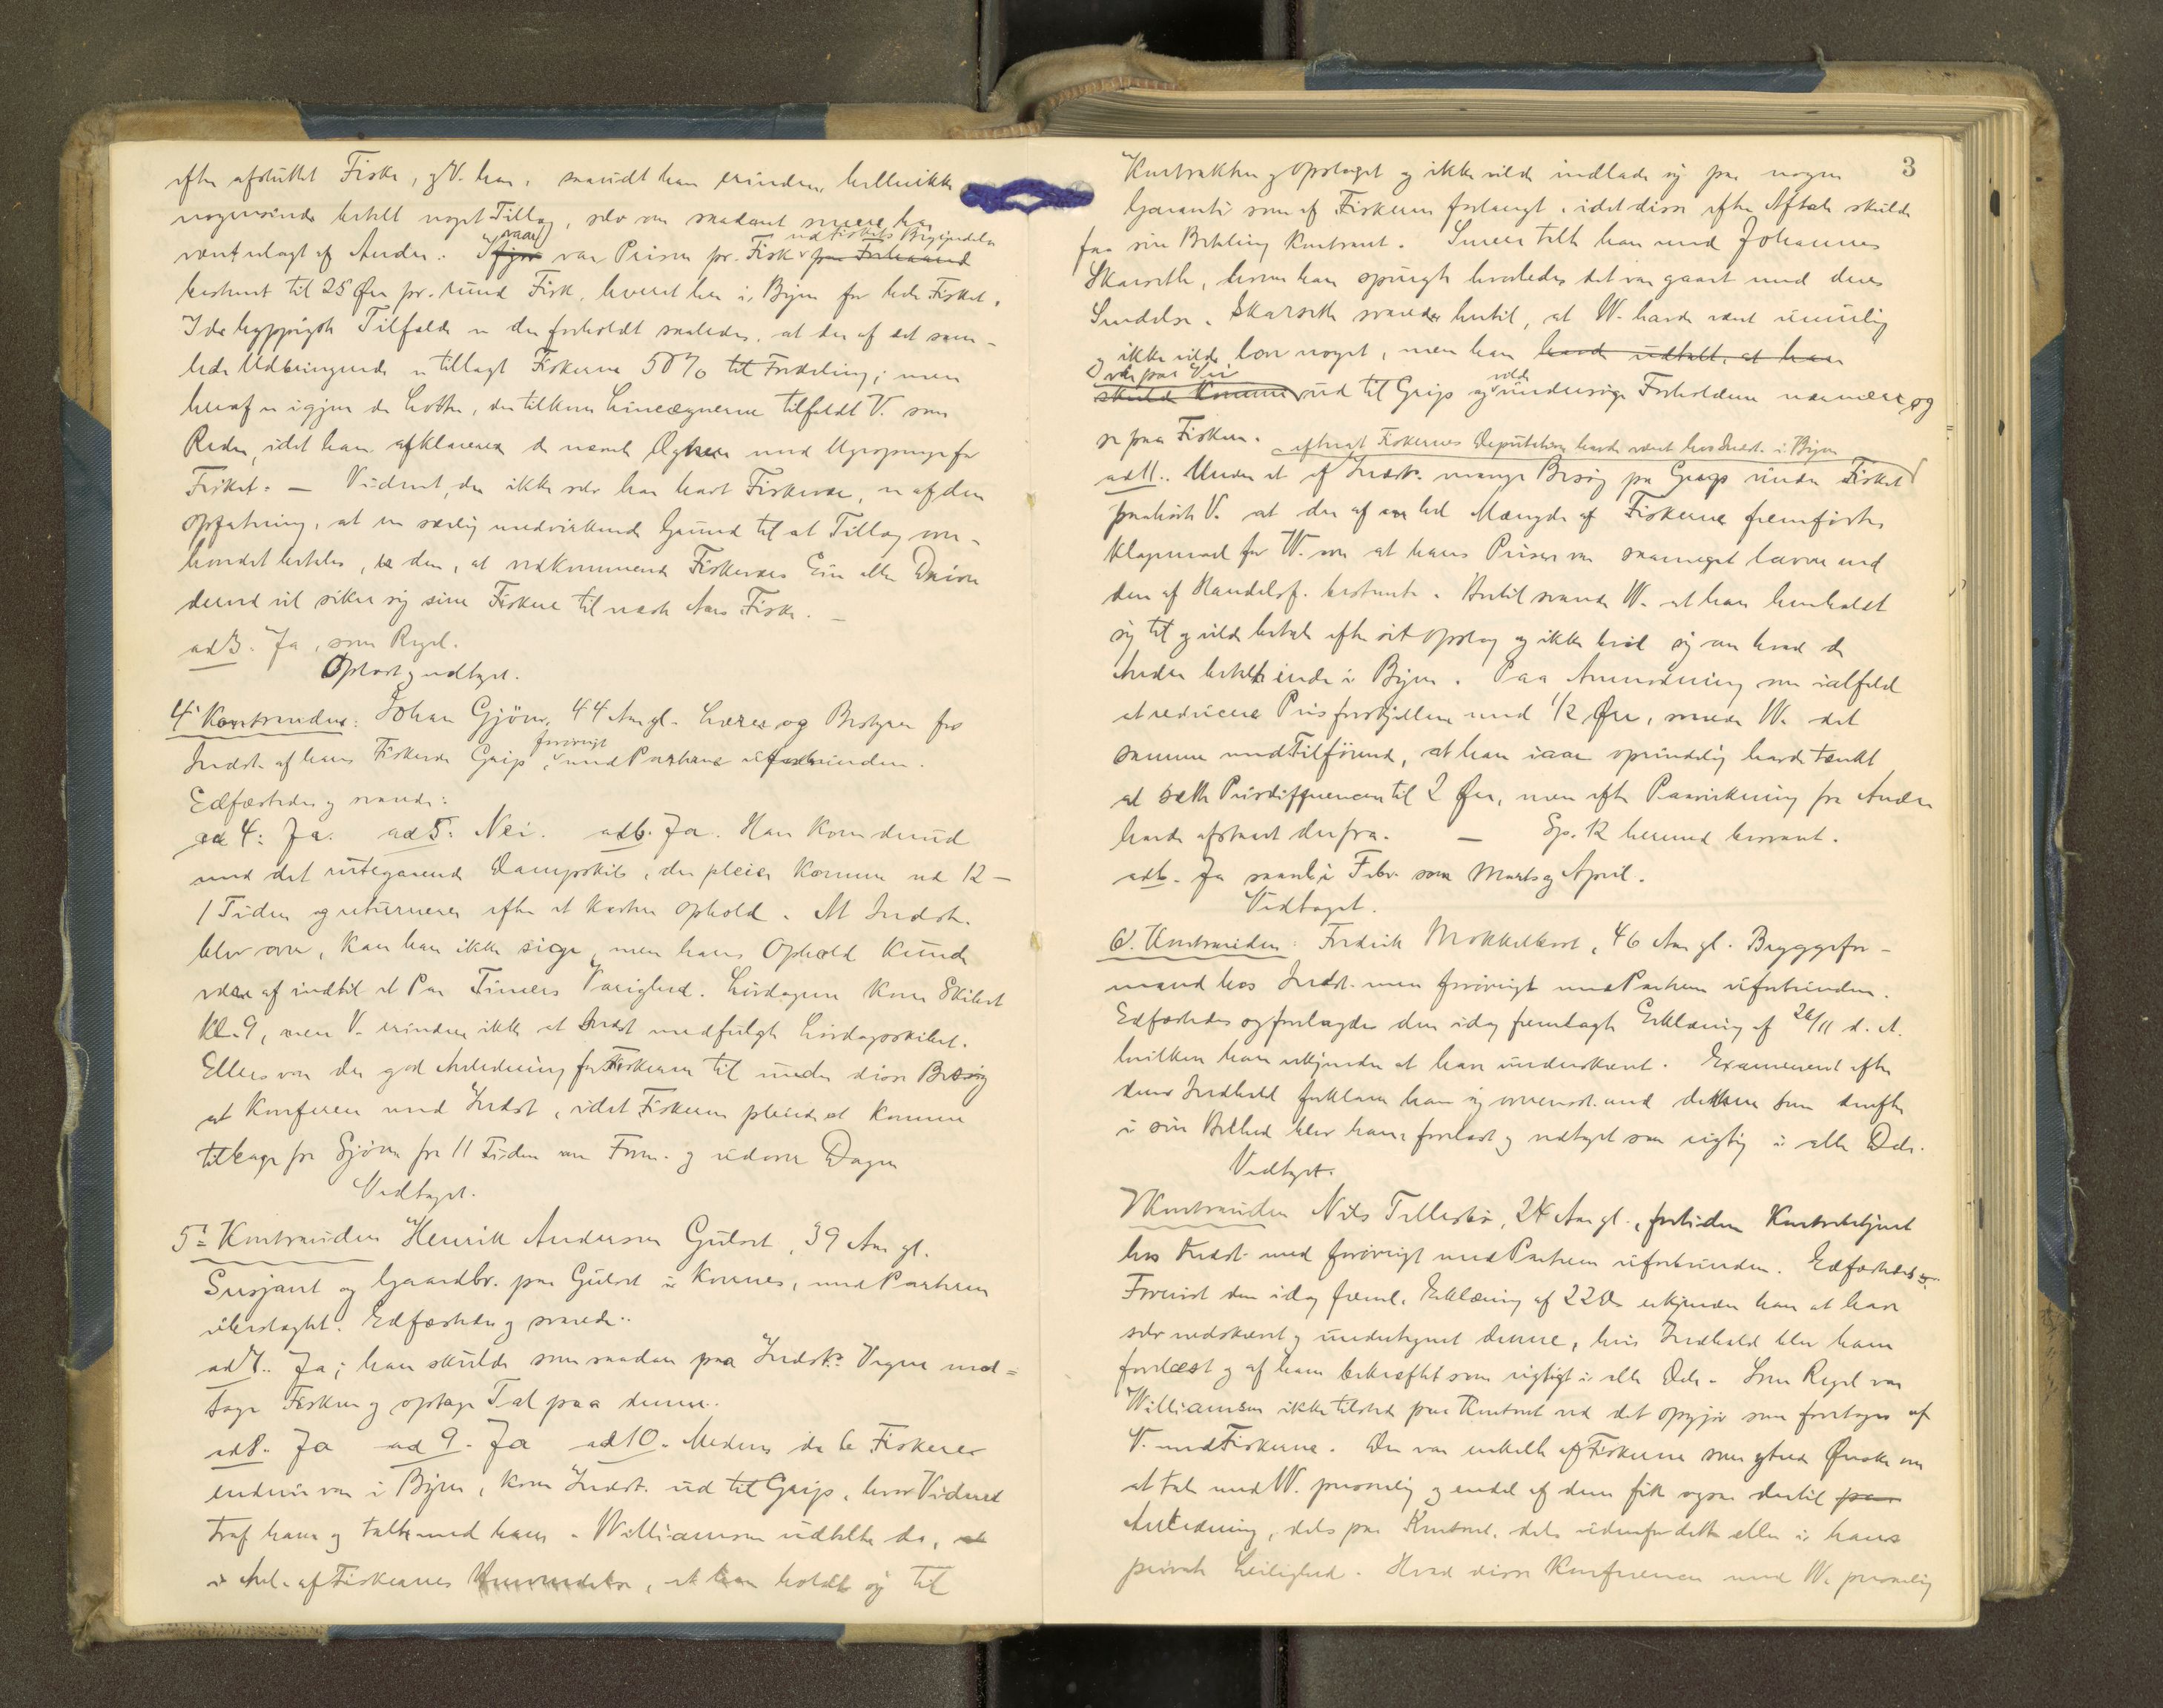 efter afsluttet Fiske, og V. har, saavidt han erindrer, heller ikke
nogensinde betalt noget Tillæg, selv om saadant senere har
været ulagt af Andre. I fjor var Prisen pr. Fisk paa Forhaand
vaar ved Fiskets Begyndelse
bestemt til 25 Øre pr. rund Fisk, leveret her i Byen for hele Fisket.
I de hyppigste Tilfælde er der forholdt saaledes, at der af det sam-
lede Udbringende er tillagt Fiskerne 50% til Fordeling; men
heraf er igjen de Lotter, der tilkom Lineegnerne tilfaldt V. som
Reder, idet han afklarerer de nævnte Egnere med Ugepenge for
Fisket. — Vidnet, der ikke selv har havt Fiskevær, er af den
Opfatning, at en særlig medvirkende Grund til at Tillæg over-
hovedet betales, er den, at vedkommende Fiskeværs Eier eller Driver
derved vil sikre sig sine Fiskere til næste Aars Fiske. —
ad 3. Ja, som Regel.
Oplæst og vedtaget.
4. Kontravidne: Johan Gjöen, 44 Aar gl. Lærer og Bestyrer for
Indst. af hans Fiskevær Grip, med Parterne uforbunden.
forøvrigt
Edfæstedes og svarede:
ad 4: Ja. ad 5: Nei. ad 6. Ja. Han kom derud
med det rutegaaende Dampskib, der pleier komme ud 12-
1 Tiden og returnerer efter et kortere Ophold. At Indst.
blev over, kan han ikke sige, men hans Ophold kunde
være af indtil et Par Timers Varighed. Lørdagene kom Skibet
Kl. 9, men V. erindrer ikke at Indst medfulgte Lørdagsskibet.
Ellers var der god Anledning for Fiskerne til under disse Besøg
at konferere med Indst, idet Fiskerne pleiede at komme
tilbage fra Sjøen fra 11 Tiden om Form. og udover Dagen
Vedtaget.
5. Kontravidne Henrik Andersen Gulset, 39 Aar gl.
Sersjant og Gaardbr. paa Gulset i Kornes, med Parterne
ubeslægtet. Edfæstedes og svarede:
ad 7. Ja; han skulde som saadan paa Indst's Vegne mod-
tage Fisken og optage Tal paa denne.
ad 8. Ja ad 9. Ja ad 10. Medens de 6 Fiskere
endnu var i Byen, kom Indst. ud til Grip, hvor Vidnet
traf ham og talte med ham. Williamsen udtalte da, at
i Anl. af Fiskernes Henvendelse, at han holdt sig til
3
Kontrakten og Opslaget og ikke vilde indlade sig paa nogen
Garanti som af Fiskerne forlangt, idet disse efter Aftale skulde
faa sin Betaling kontant. Senere talte han med Johannes
Skarseth, hvem han spurgte hvorledes det var gaaet med deres
Sendelse. Skarseth svarede hertil, at W. havde været umulig
og ikke vilde love noget, men han havde udtalt, at han
var paa Vei
skulde komme ud til Grip og undersøge Forholdene nærmere og
vilde
se paa Fisken.
efterat Fiskernes Deputation havde været hos Indst. i Byen
ad 11. Under et af Indst. mange Besøg paa Grip under Fisket
paahørte V. at der af en hel Mængde af Fiskerne fremførtes
Klagemaal for W. over at hans Priser var saameget lavere end
den af Handelsf. bestemte. Hertil svarede W. at han henholdt
sig til og vilde betale efter sit Opslag og ikke brød sig om hvad de
Andre betalte inde i Byen. Paa Anmodning om ialfald
at reducere Prisforskjellen med 1/2 Øre, svarede W. det
samme med Tilføiende, at han iaar oprindelig havde tænkt
at sætte Prisdifferencen til 2 Øre, men efter Paavirkning fra Andre
havde afstaaet derfra. — Sp. 12 hermed besvaret.
ad 6. Ja saavel i Febr. som Marts og April.
Vedtaget.
6. Kontravidne: Fredrik Mokkelbost, 46 Aar gl. Bryggefor-
mand hos Indst. men forøvrigt med Parterne uforbunden.
Edfæstedes og forelagdes den idag fremlagte Erklæring af 26/11 d. A.
hvilken han erkjender at have underskrevet. Examineret efter
dens Indhold forklarer han sig overensst. med dette som derefter
i sin Helhed blev ham forelæst og vedtaget som rigtig i alle Dele.
Vedtaget.
7 Kontravidne Nils Tellesbø, 24 Aar gl., fortiden Kontorbetjent
hos Indst. med forøvrigt med Parterne uforbunden. Edfæstedes og
Forevist den idag freml. Erklæring af 22 Ds erkjender han at have
selv nedskrevet og undertegnet denne, hvis Indhold blev ham
forelæst og af ham bekræftet som rigtigt i alle Dele. Som Regel var
Williamsen ikke tilstede paa Kontoret ved det Opgjør som foretoges af
V. med Fiskerne. Der var enkelte af Fiskerne som ytrede Ønske om
at tale med W. personlig og endel af dem fik ogsaa dertil paa
Anledning, dels paa Kontoret, dels udenfor dette eller i hans
private Leilighed. Hvad disse Konferencer med W. personlig